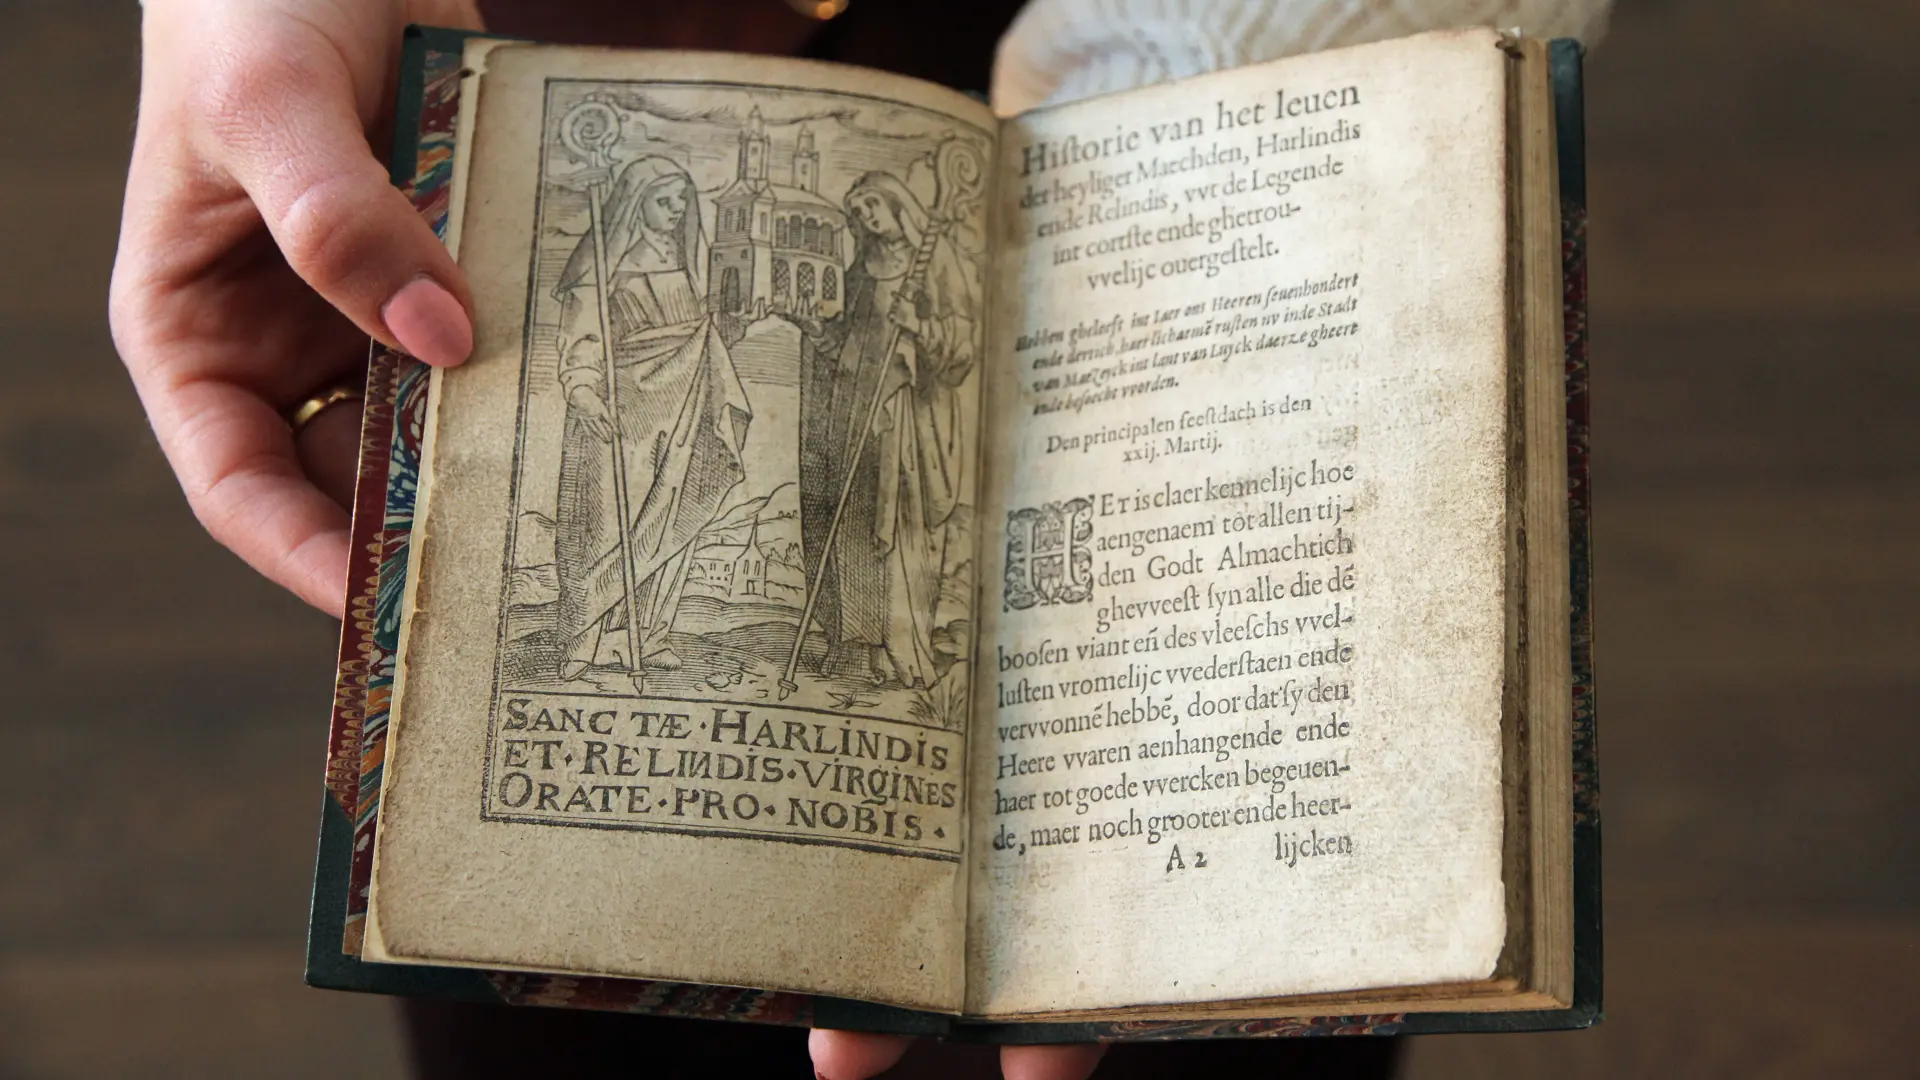 SANCTÆ·HARLINDIS
ET·RELINDIS·VIRGINES
ORATE·PRO·NOBIS·
Hiſtorie van het leuen
der heyliger Maechden, Harlindis
ende Relindis, vvt de Legende
int cortſte ende ghetrou-
vvelijc ouergeſtelt.
Hebben gheleeft int Iaer ons Heeren ſeuenhondert
ende dertich, haer lichamẽ ruſten nv inde Stadt
van Maeẓeyck int lant van Luyck daerze gheert
ende beſocht vvorden.
Den principalen feeſtdach is den
xxij. Martij.
HEt is claer kennelijc hoe
aengenaem tot allen tij-
den Godt Almachtich
ghevveeſt ſyn alle die dẽ
booſen viant en̄ des vleeſchs vvel-
luſten vromelijc vvederſtaen ende
vervvonnẽ hebbẽ, door dat ſy den
Heere vvaren aenhangende ende
haer tot goede vvercken begeuen-
de, maer noch grooter ende heer-
A 2 lijcken